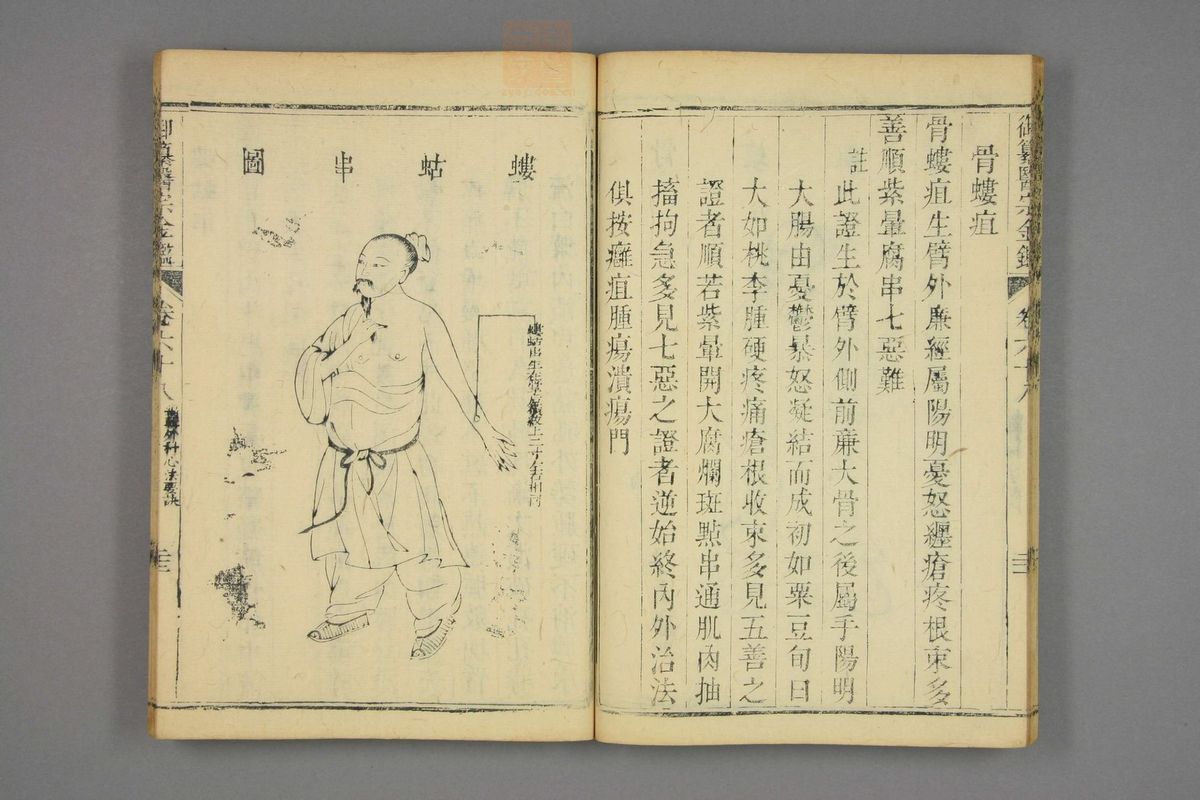 骨螻疽
骨螻疽生臂外廉經屬陽明憂怒纏瘡疼根束多
善順紫暈腐串七惡難
註
此證生於臂外側前廉大骨之後屬手陽明
大腸由憂鬱暴怒凝結而成初如粟豆旬日
大如桃李腫硬疼痛瘡根收束多見五善之
證者順若紫暈開大腐爛斑點串通肌肉抽
搐拘急多見七惡之證者逆始終內外治法
俱按癰疽腫瘍潰瘍門
螻蛄串圖
御纂醫宗金鑑
卷六十八
外科心法要訣